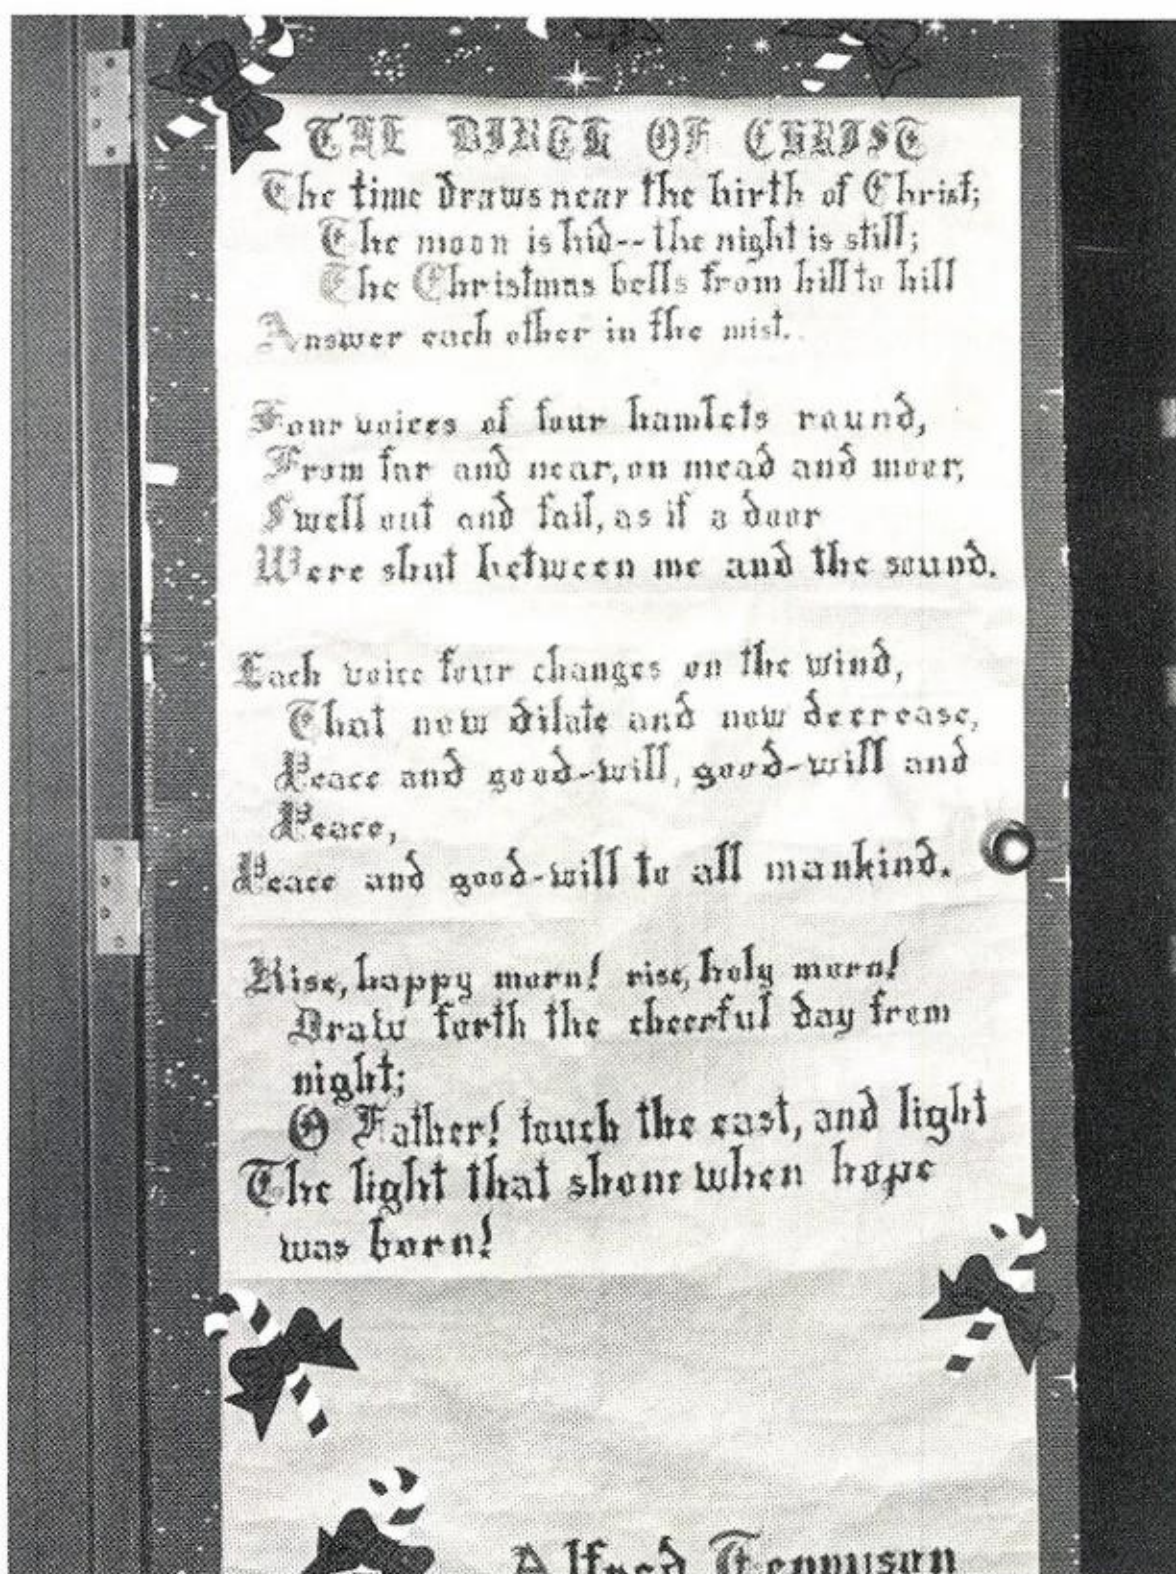 THE BIRTH OF CHRIST
The time draws near the birth of Christ;
The moon is hid--the night is still;
The Christmas bells from hill to hill
Answer each other in the mist.
Four voices of four hamlets round,
From far and near, on mead and moor,
Swell out and fail, as if a door
Were shut between me and the sound.
Each voice four changes on the wind,
That now dilate and now decrease,
Peace and good-will, good-will and
Peace,
Peace and good-will to all mankind.
Rise, happy morn! rise, holy morn!
Draw forth the cheerful day from
night;
O Father! touch the east, and light
The light that shone when hope
was born!
Alfred Tennyson